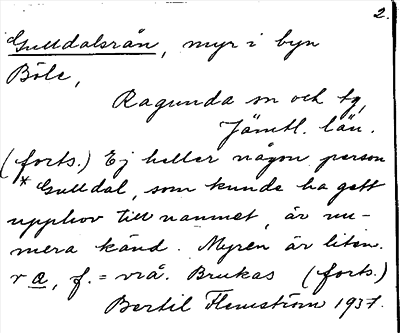 2.
Gulldalsrån, myr i byn
Böle,
Ragunda sn och tg,
Jämtl. län.
(forts.) Ej heller någon person
*Gulldal, som kunde ha gett
upphov till namnet, är nu-
mera känd. Myren är liten.
r a, f. = vrå. Brukas (forts.)
Bertil Flemström 1937.